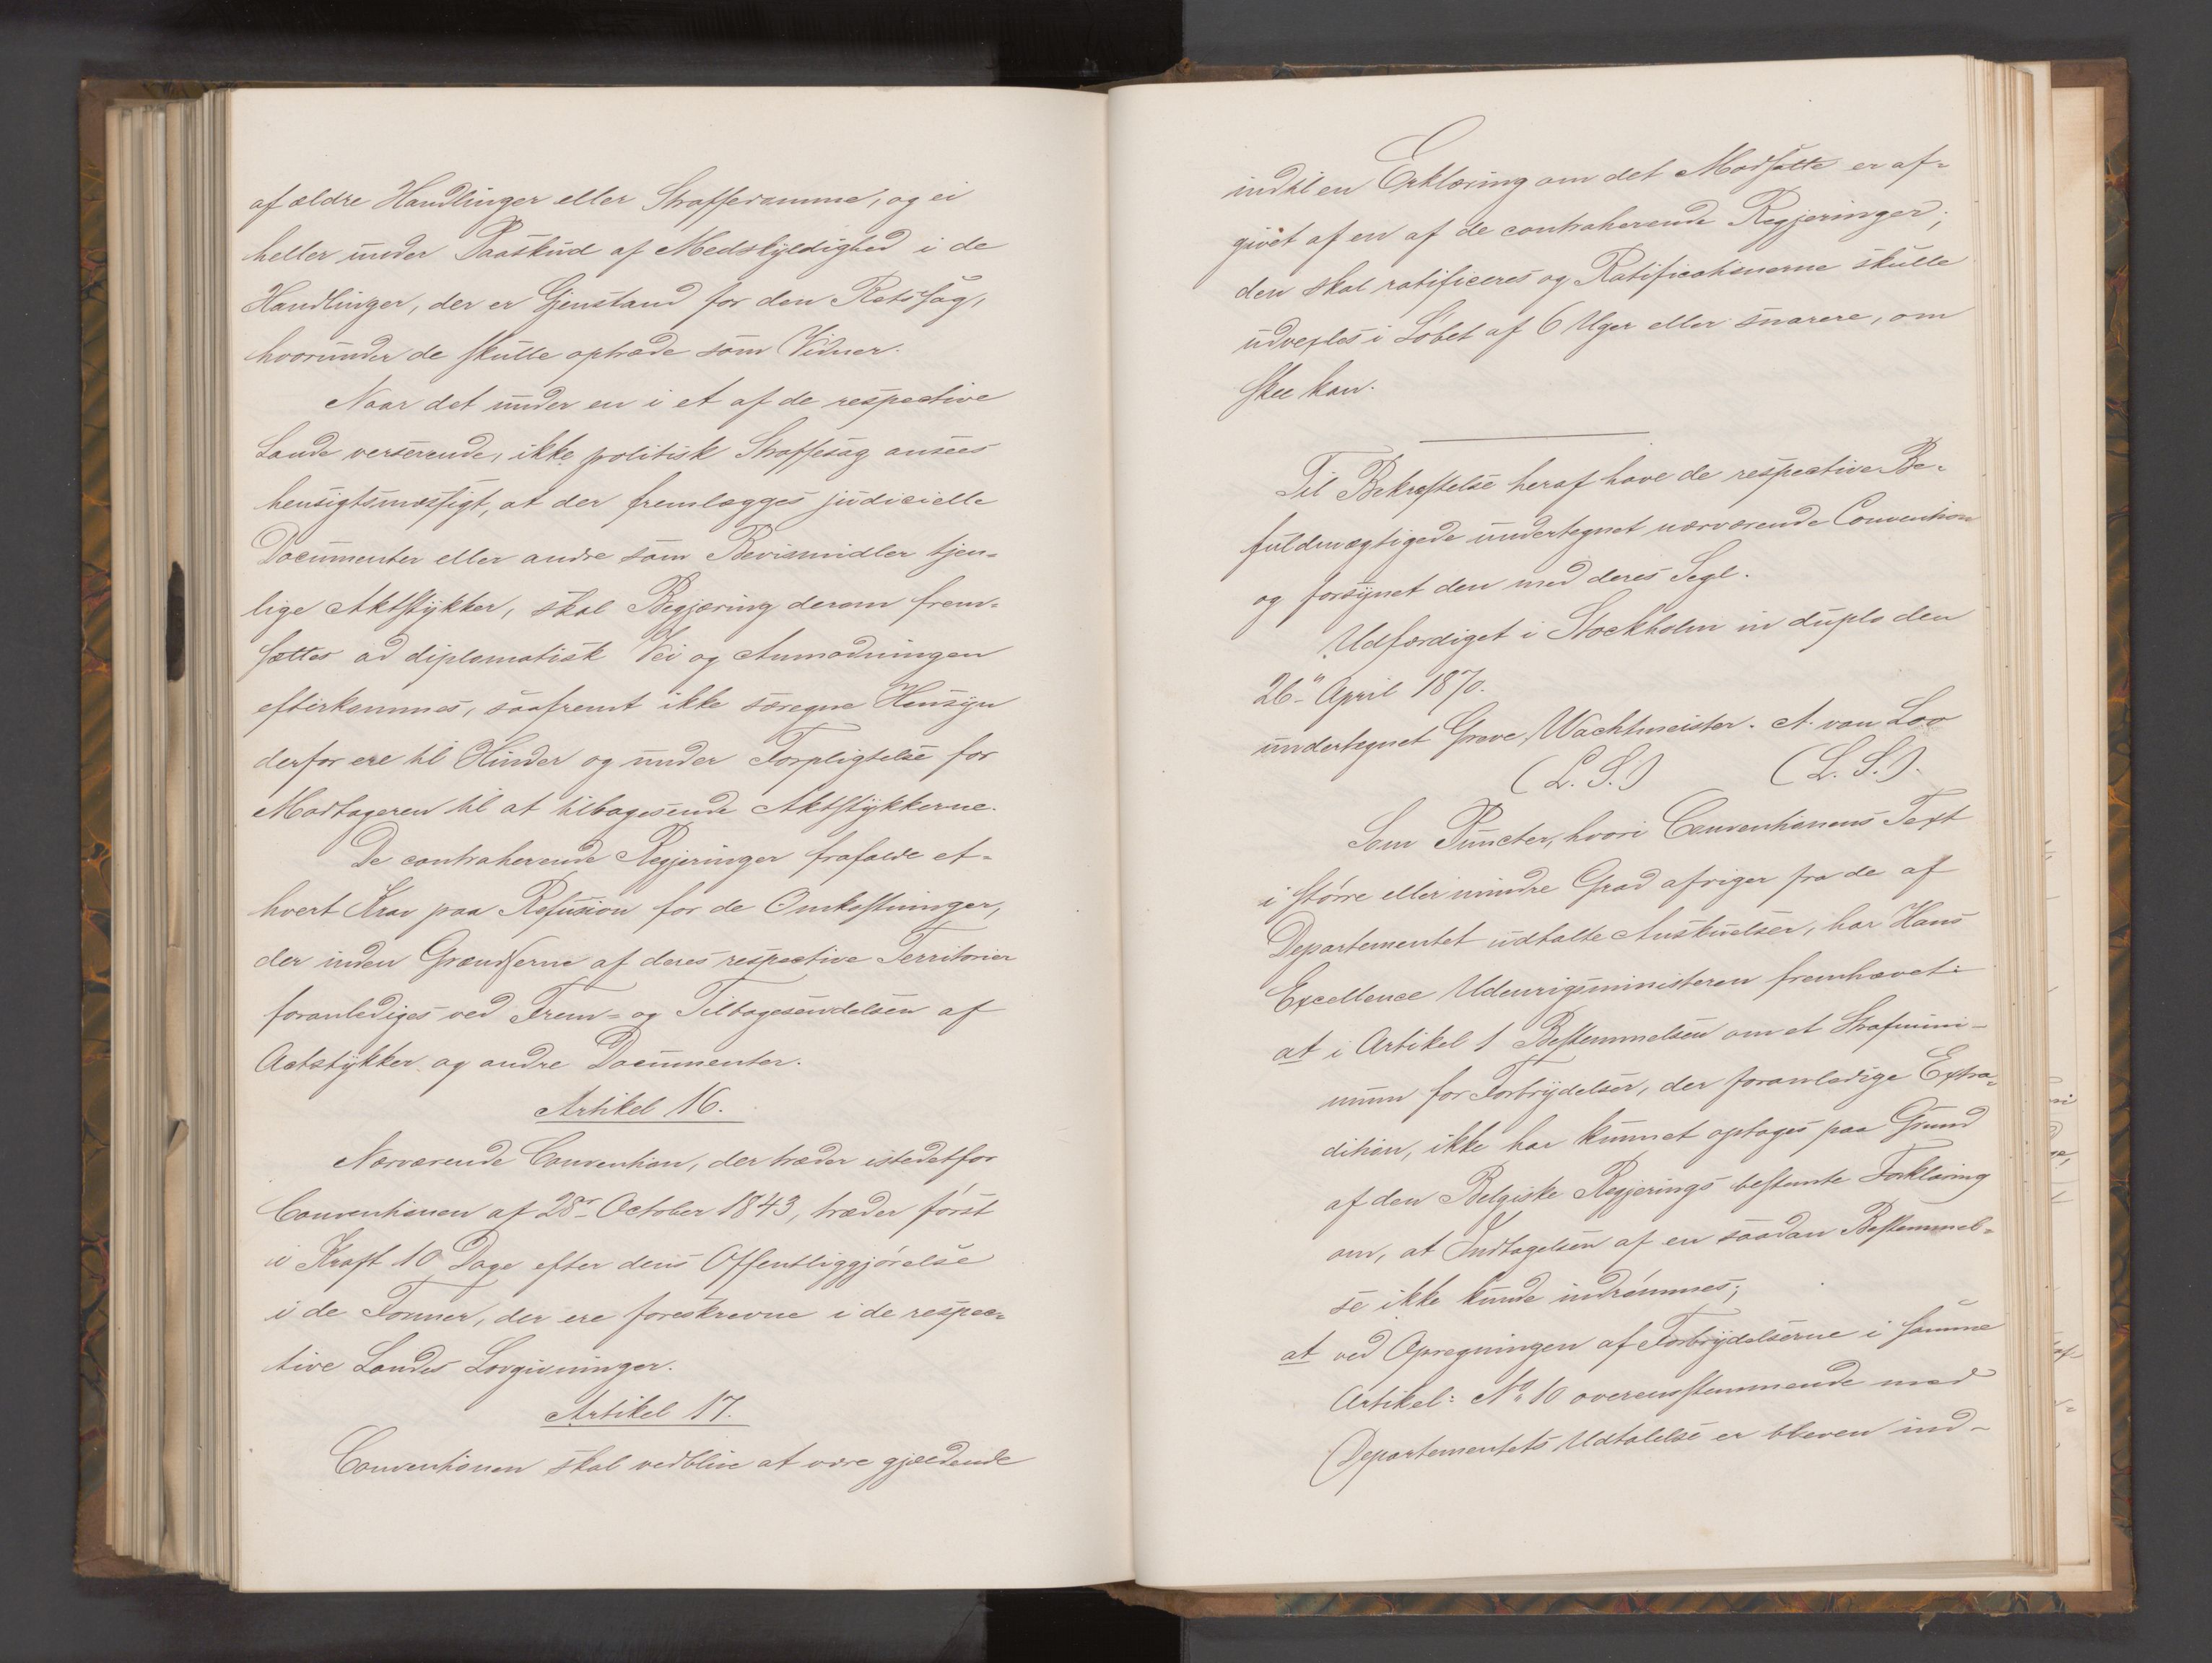 af ældre Handlinger eller Straffedomme, og ei
heller under Paaskud af Medskyldighed i de
Handlinger, der er Gjenstand for den Retssag,
hvorunder de skulle optræde som Vidner.
Naar det under en i et af de respective
Lande verserende, ikke politisk Straffesag ansees
hensigtsmæssigt, at der fremlægges judicielle
Documenter eller andre som Bevismidler tjen-
lige Aktstykker, skal Begjæring derom frem-
sættes ad diplomatisk Vei og Anmodningen
efterkommes, saafremt ikke særegne Hensyn
derfor ere til Hinder og under Forpligtelse for
Modtageren til at tilbagesende Aktstykkerne.
De contraherende Regjeringer frafalde et-
hvert Krav paa Refusion for de Omkostninger,
der inden Grændserne af deres respective Territorier
foranlediges ved Frem- og Tilbagesendelsen af
Actstykker og andre Documenter.
Artikel 16.
Nærværende Convention, der træder istedetfor
Conventionen af 28de October 1843, træder først
i Kraft 10 Dage efter dens Offentliggjørelse
i de Former, der ere foreskrevne i de respec-
tive Landes Lovgivninger.
Artikel 17.
Conventionen skal vedblive at være gjældende
indtil en Erklæring om det Modsatte er af-
givet af en af de contraherende Regjeringer;
den skal ratificeres og Ratificationerne skulle
udvexles i Løbet af 6 Uger eller snarere, om
skee kan.
Til Bekræftelse heraf have de respective Be-
fuldmægtigede undertegnet nærværende Convention
og forsynet den med deres Segl.
Udfærdiget i Stockholm in duplo den
26" April 1870.
undertegnet Greve Wachtmeister. A. van Loo
(L. S.) (L. S.).
Som Puncter, hvori Conventionens Text
i større eller mindre Grad afviger fra de af
Departementet udtalte Anskuelser, har Hans
Excellence Udenrigsministeren fremhævet:
at i Artikel 1 Bestemmelsen om et Strafmini-
mum for Forbrydelser, der foranledige Extra-
dition, ikke har kunnet optages paa Grund
af den Belgiske Regjerings bestemte Forklaring
om, at Indtagelsen af en saadan Bestemmel-
se ikke kunde indrømmes;
at ved Opregningen af Forbrydelserne i samme
Artikel: No 10 overensstemmende med
Departementets Udtalelse er bleven ind-